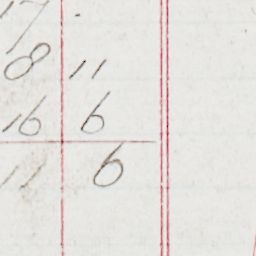 17
8 11
16 6
11 6